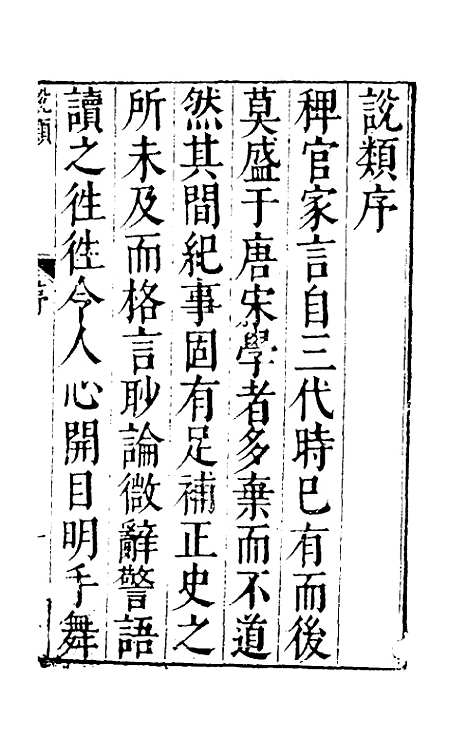 說類序
稗官家言自三代時已有而後
莫盛于唐宋學者多棄而不道
然其間紀事固有足補正史之
所未及而格言眇論微辭警語
讀之徃徃令人心開目明手舞
說類
序
一